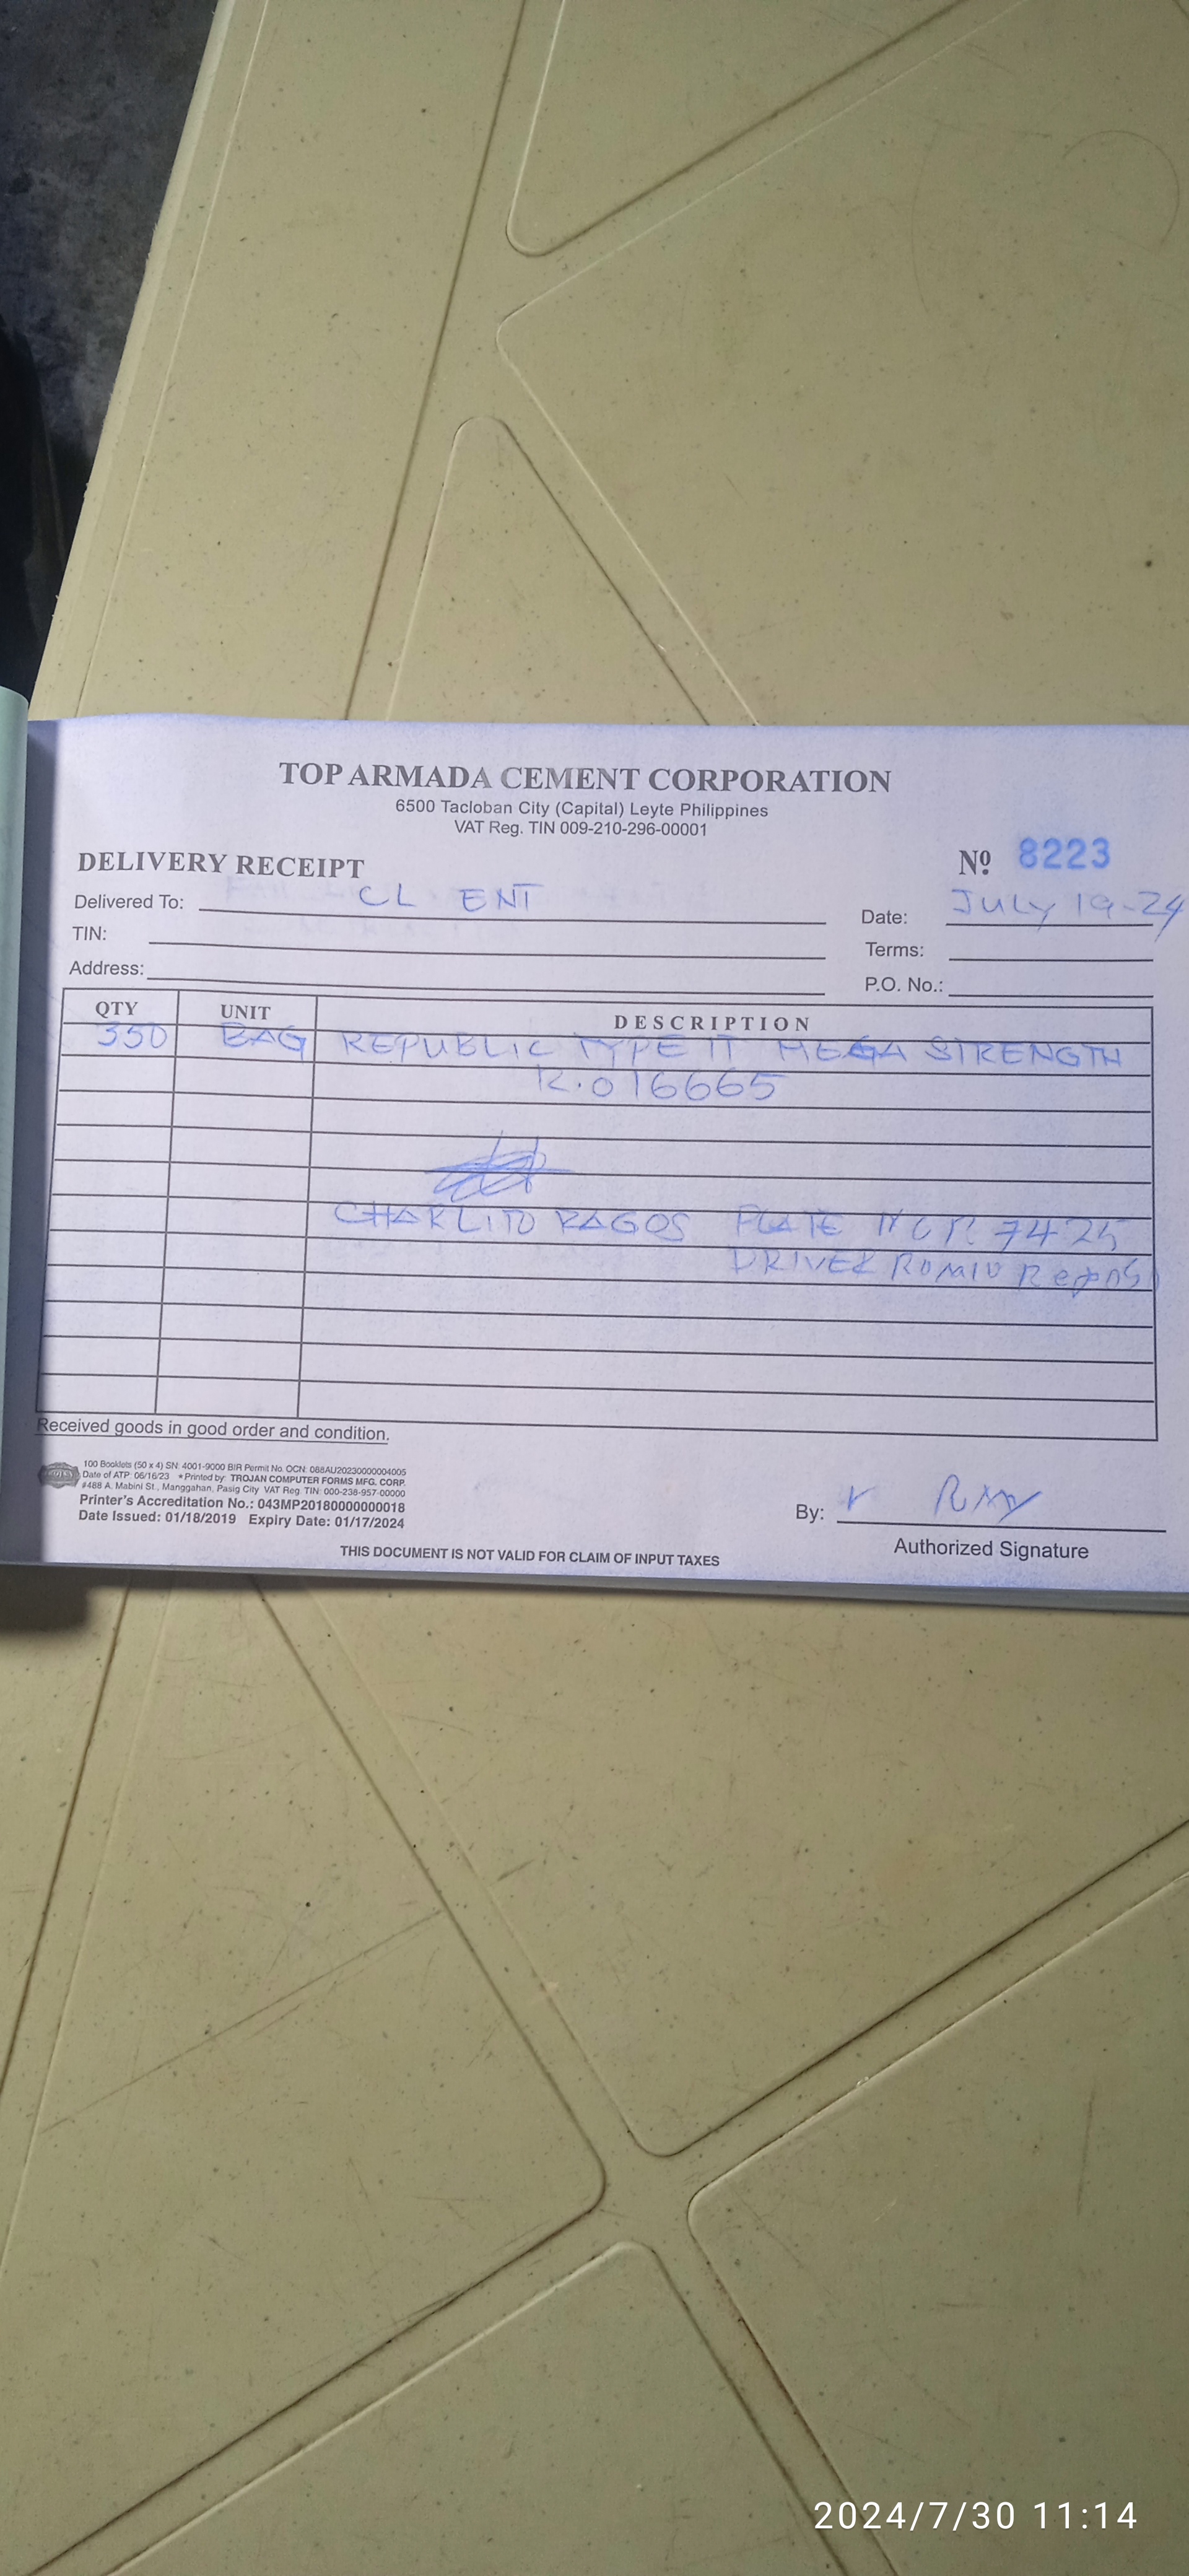 TOP ARMADA CEMENT CORPORATION
6500 Tacloban City (Capital) Leyte Philippines
VAT Reg. TIN 009-210-296-00001
DELIVERY RECEIPT
Nº 8223
Delivered To: CL ENT
Date: JULY 19-24
TIN:
Terms:
Address:
P.O. No.:
QTY UNIT DESCRIPTION
350 BAG REPUBLIC TYPE IT MEGA STRENGTH
R.016665
CHARLITO RAGOS PLATE NCR 7425
DRIVER ROMIO
Received goods in good order and condition.
100 Booklets (50 x 4) SN: 4001-9000 BIR Permit No. OCN: 088AU20230000004005
Date of ATP: 06/16/23 * Printed by: TROJAN COMPUTER FORMS MFG. CORP.
#488 A. Mabini St., Manggahan, Pasig City VAT Reg. TIN: 000-238-957-00000
Printer's Accreditation No.: 043MP20180000000018
Date Issued: 01/18/2019 Expiry Date: 01/17/2024
By:
Authorized Signature
THIS DOCUMENT IS NOT VALID FOR CLAIM OF INPUT TAXES
2024/7/30 11:14